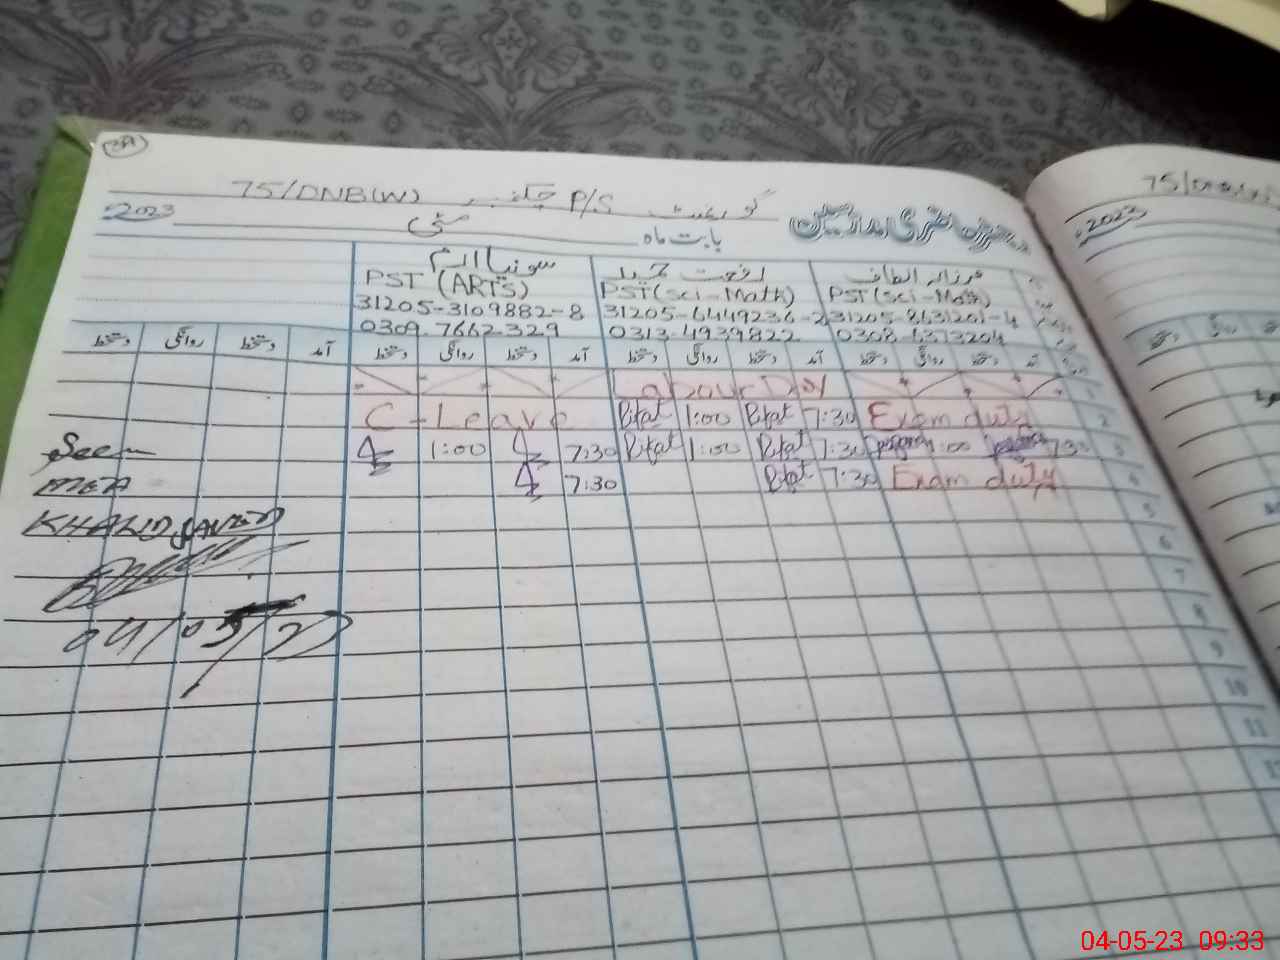 75/DNB(W) چک نمبر P/S گورنمنٹ
2023 مئی بابت ماہ حاضری مدرسین
سونیا ارم رفعت حمید فرزانہ الطاف
PST (ARTS) PST(Sci-Math) PST(Sci-Math)
31205-3109882-8 31205-6449236-2 31205-8631201-4
0309.7662329 0313-4939822 0308-6373204
دستخط روانگی دستخط آمد دستخط روانگی دستخط آمد دستخط روانگی دستخط آمد دستخط روانگی دستخط آمد
Labour Day 1
C-Leave Rifat 1:00 Rifat 7:30 Exam duty 2
Seen 1:00 7:30 Rifat 1:00 Rifat 7:30 1:00 7:30 3
MEA 7:30 Rifat 7:30 Exam duty 4
KHALID JAVED 5
6
04/05/23 7
8
9
10
11
75/DNB(W)
2023
روانگی
دستخط
04-05-23 09:33